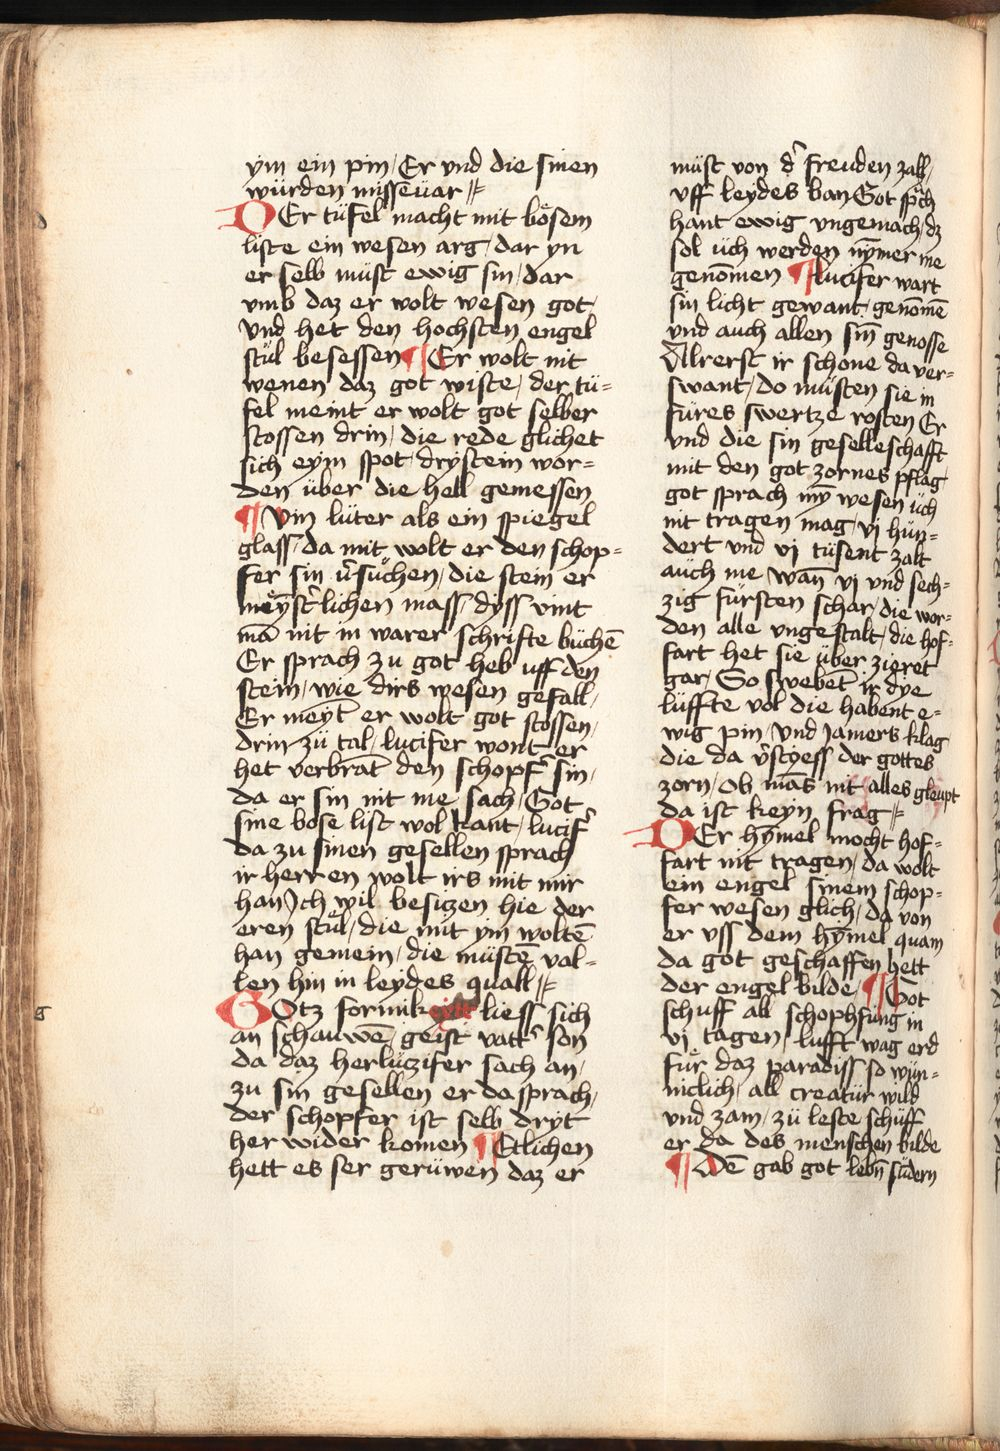 ym ein pin / Er vnd die sinen
würden missevar //
DEr tüfel macht mit bösem
liste ein wesen arg / dar yn
er selb müst ewig sin / dar
vmb daz er wolt wesen got /
vnd het den hochsten engel
stůl besessen ¶ Er wolt nit
wenen daz got wiste / der tü=
fel meint er wolt got selber
stossen drin / die rede glichet
sich eym spot / dry stein wor=
den über die hell gemessen
¶ Vin lüter als ein spiegel
glass / da mit wolt er den schop=
fer sin v̉sůchen / die stein er
mëyst̉lichen mass / dyss vint
mā nit in warer schrifte büchē
Er sprach zu got heb uff den
stein / wie dirs wesen gefall /
Er meyt̄ er wolt got stossen /
drin zü tal / lucifer wont er
het verbrāt den schopf̉ sin /
da er sin nit me sach / Got
sine bose list wol kant / lucif̉
da zu sinen gesellen sprach
ir herren wolt irs mit mir
han Ich wil besizen hie der
eren stůl / die mit ym woltē
han gemein / die müstē val=
len hin in leydes quall //
GOtz formikeytt liess sich
an schauwē / geist vatt̉ son
da daz her luzifer sach an /
zu sin gesellen er da sprach /
der schopfer ist selb dryt
her wider komen ¶ Etlichen
hett es ser gerüwen daz er
müst von d̉ freuden zall /
vff leydes ban Got sp̄ch
hant ewig vngemach / dz
sol üch werden nȳmer me
genōmen ¶ lucifer wart
sin licht gewant genōmē
vnd auch allen sin̄ genosse
Alrerst ir schone da ver=
swant / do müsten sie in
füres swertze rosten Er
vnd die sin geselleschafft
mit den got zornes pflag
got sprach mȳ wesen üch
nit tragen mag / vj hün=
dert vnd vj tüsent zalt
auch me wan̄ vj vnd sech=
zig fürsten schar / die wor=
den alle vngestalt / die hof=
fart het sie über zieret
gar / So swebet̄ ir dye
lüffte vol die habent e=
wig pin / vnd Jamers klag
die da v̉stiess der gottes
zorn / ob mās nit alles gleupt
da ist keyn frag //
DEr hȳmel mocht hof=
fart nit tragen / da wolt
ein engel sinem schop=
fer wesen glich / da von
er vss dem hȳmel quam
da got geschaffen hett
der engel bilde / ¶ Got
schuff all schophfüng in
vj tagen / lufft wag erd
für daz paradiss so wün=
niclich / all creatür wild
vnd zam / zü leste schüff
er da des menschen bilde
¶ Dē gab got lebn̄ sundern